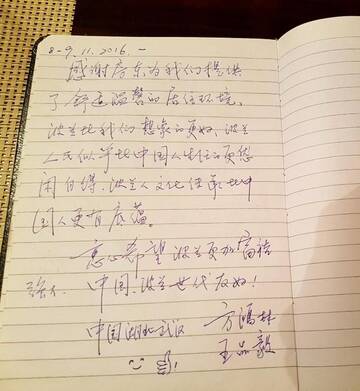 8-9.11.2016.
感谢房东为我们提供
了舒适温馨的居住环境。
波兰比我们想象的更好，波兰
人民似乎比中国人生活的更悠
闲自得，波兰人文化似乎比中
国人更有底蕴。
衷心希望波兰更加富裕
中国、波兰世代友好！
中国湖北武汉 方鸿林
王品毅